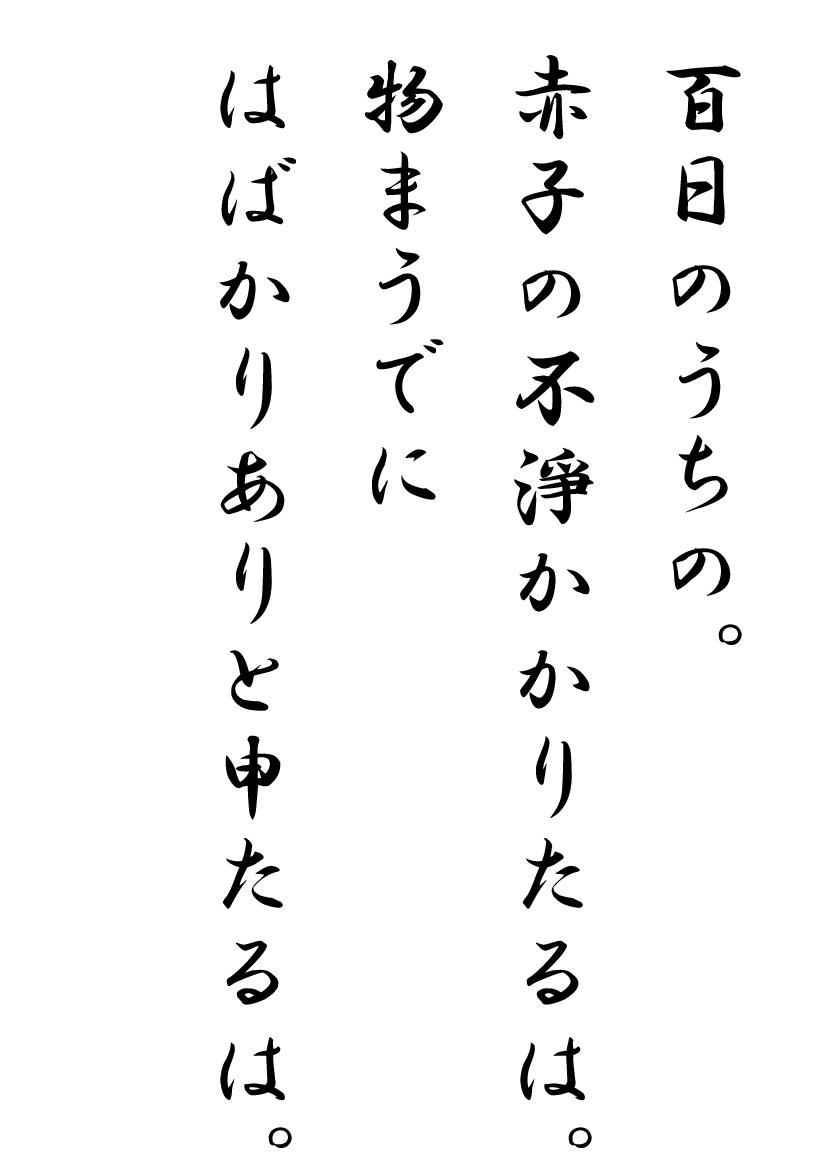 百日のうちの。
赤子の不淨かかりたるは。
物まうでに
はばかりありと申たるは。